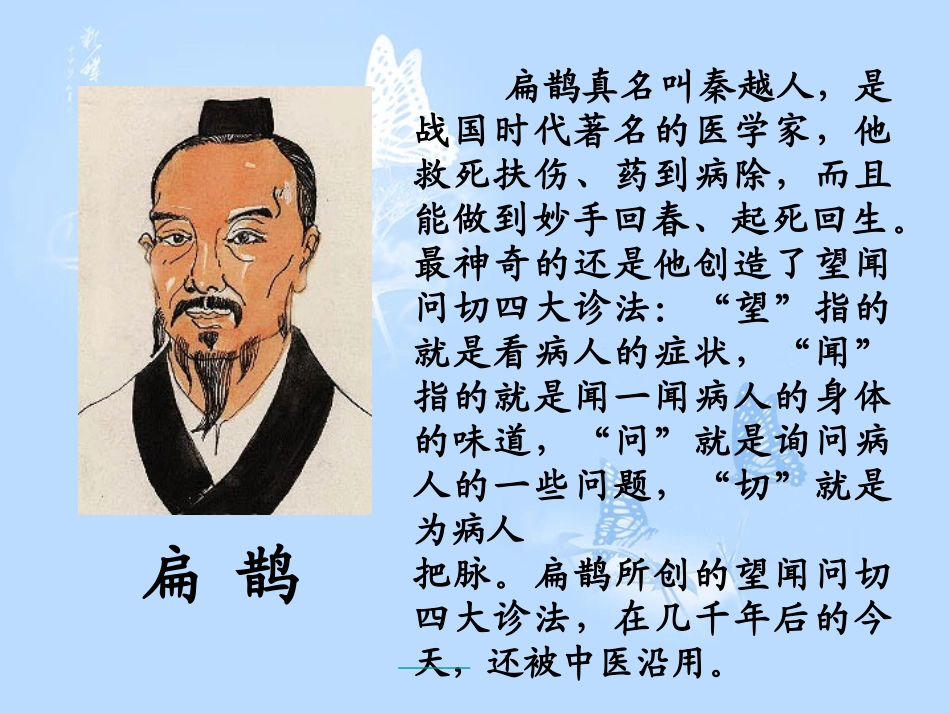 扁鹊真名叫秦越人，是
战国时代著名的医学家，他
救死扶伤、药到病除，而且
能做到妙手回春、起死回生。
最神奇的还是他创造了望闻
问切四大诊法：“望”指的
就是看病人的症状，“闻”
指的就是闻一闻病人的身体
的味道，“问”就是询问病
人的一些问题，“切”就是
为病人
把脉。扁鹊所创的望闻问切
四大诊法，在几千年后的今
天，还被中医沿用。
扁 鹊